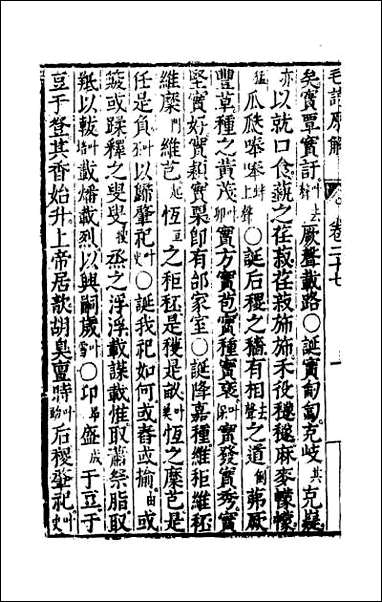 毛詩原解　卷二十七
矣實覃實訏叶去厥聲載路○誕實匍匐克岐其克嶷
亦以就口食蓺之荏菽荏菽旆旆禾役穟穟麻麥幪幪
猛瓜瓞唪唪蚌上聲○誕后稷之穡有相去聲之道倒茀厥
豐草種之黃茂叶卯實方實苞實種實褎叶保實發實秀實
堅實好實穎實栗即有邰家室○誕降嘉種維秬維秠
維穈門維芑起恆亘之秬秠是穫是畝叶美恆之穈芑是
任是負叶以歸肇祀叶○誕我祀如何或舂或揄由或
簸或蹂釋之叟叟搜烝之浮浮載謀載惟取蕭祭脂取
羝以軷叶載燔載烈以興嗣歲叶雪○卬昂盛成于豆于
豆于登其香始升上帝居歆胡臭亶時叶后稷肇祀叶史